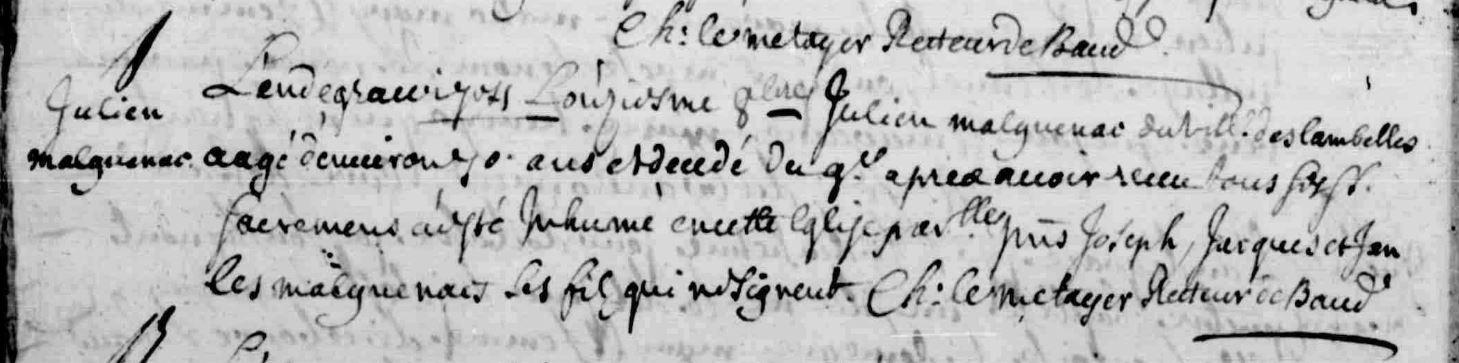 Ch: le metayer Recteur de Baud
Julien
malguenac
L'an de grace onziesme Julien malguenac du vill. des lambelles
aagé denuiron 70. ans et decedé du apres auoir receu tous ses sts.
sacremens a esté Inhumé en cette Eglise par.lle pnts Joseph, Jacques et Jan
les malguenacs ses fils qui ne signent. Ch: le metayer Recteur de Baud